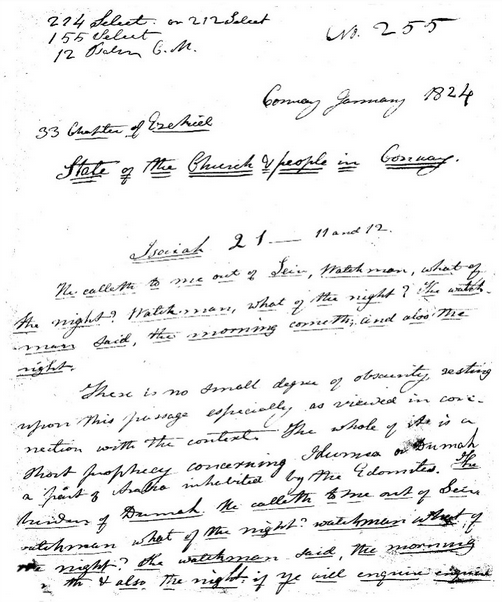 224 Select. or 212 Select
155 Select
12 Psalm C. M.
No. 255
Conway January 1824
33 Chapter of Ezekiel
State of the Church & people in Conway.
Isaiah 21 — 11 and 12.
He calleth to me out of Seir, Watchman, what of
the night? Watchman, what of the night? The watch-
man said, the morning cometh, and also the
night.
There is no small degree of obscurity resting
upon this passage especially as viewed in con-
nection with the context. The whole of it is a
short prophecy concerning Idumea or Dumah
a part of Arabia inhabited by the Edomites. The
burden of Dumah He calleth to me out of Seir
watchman what of the night? watchman what of
the night? the watchman said, the morning
th & also the night, if ye will enquire enquire